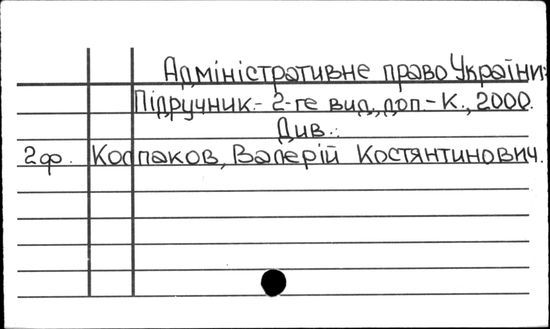 Адміністративне право України:
Підручник.- 2-ге вид., доп.- К., 2000.
Див.:
2ф. Колпаков, Валерій Костянтинович.